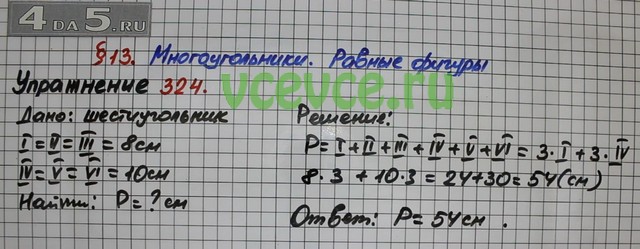 4DA5.RU
§13. Многоугольники. Равные фигуры
Упражнение 324.
vcevce.ru
Дано: шестиугольник
I = II = III = 8см
IV = V = VI = 10см
Найти: P = ? см
Решение:
P = I + II + III + IV + V + VI = 3·I + 3·IV
8·3 + 10·3 = 24 + 30 = 54 (см)
Ответ: P = 54 см.